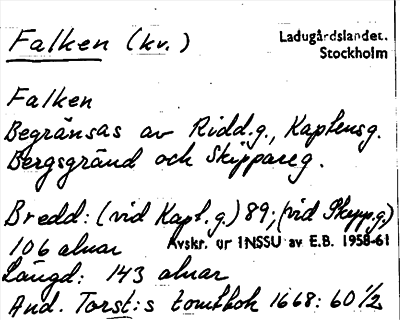 Falken (kv.)
Ladugårdslandet.
Stockholm
Falken
Begränsas av Ridd.g., Kaptensg.
Bergsgränd och Skippareg.
Bredd: (vid Kapt.g.) 89; (vid Skepp.g.)
106 alnar
Avskr. ur INSSU av E.B. 1958-61
Längd: 143 alnar
And. Torst:s tomtbok 1668: 60 1/2